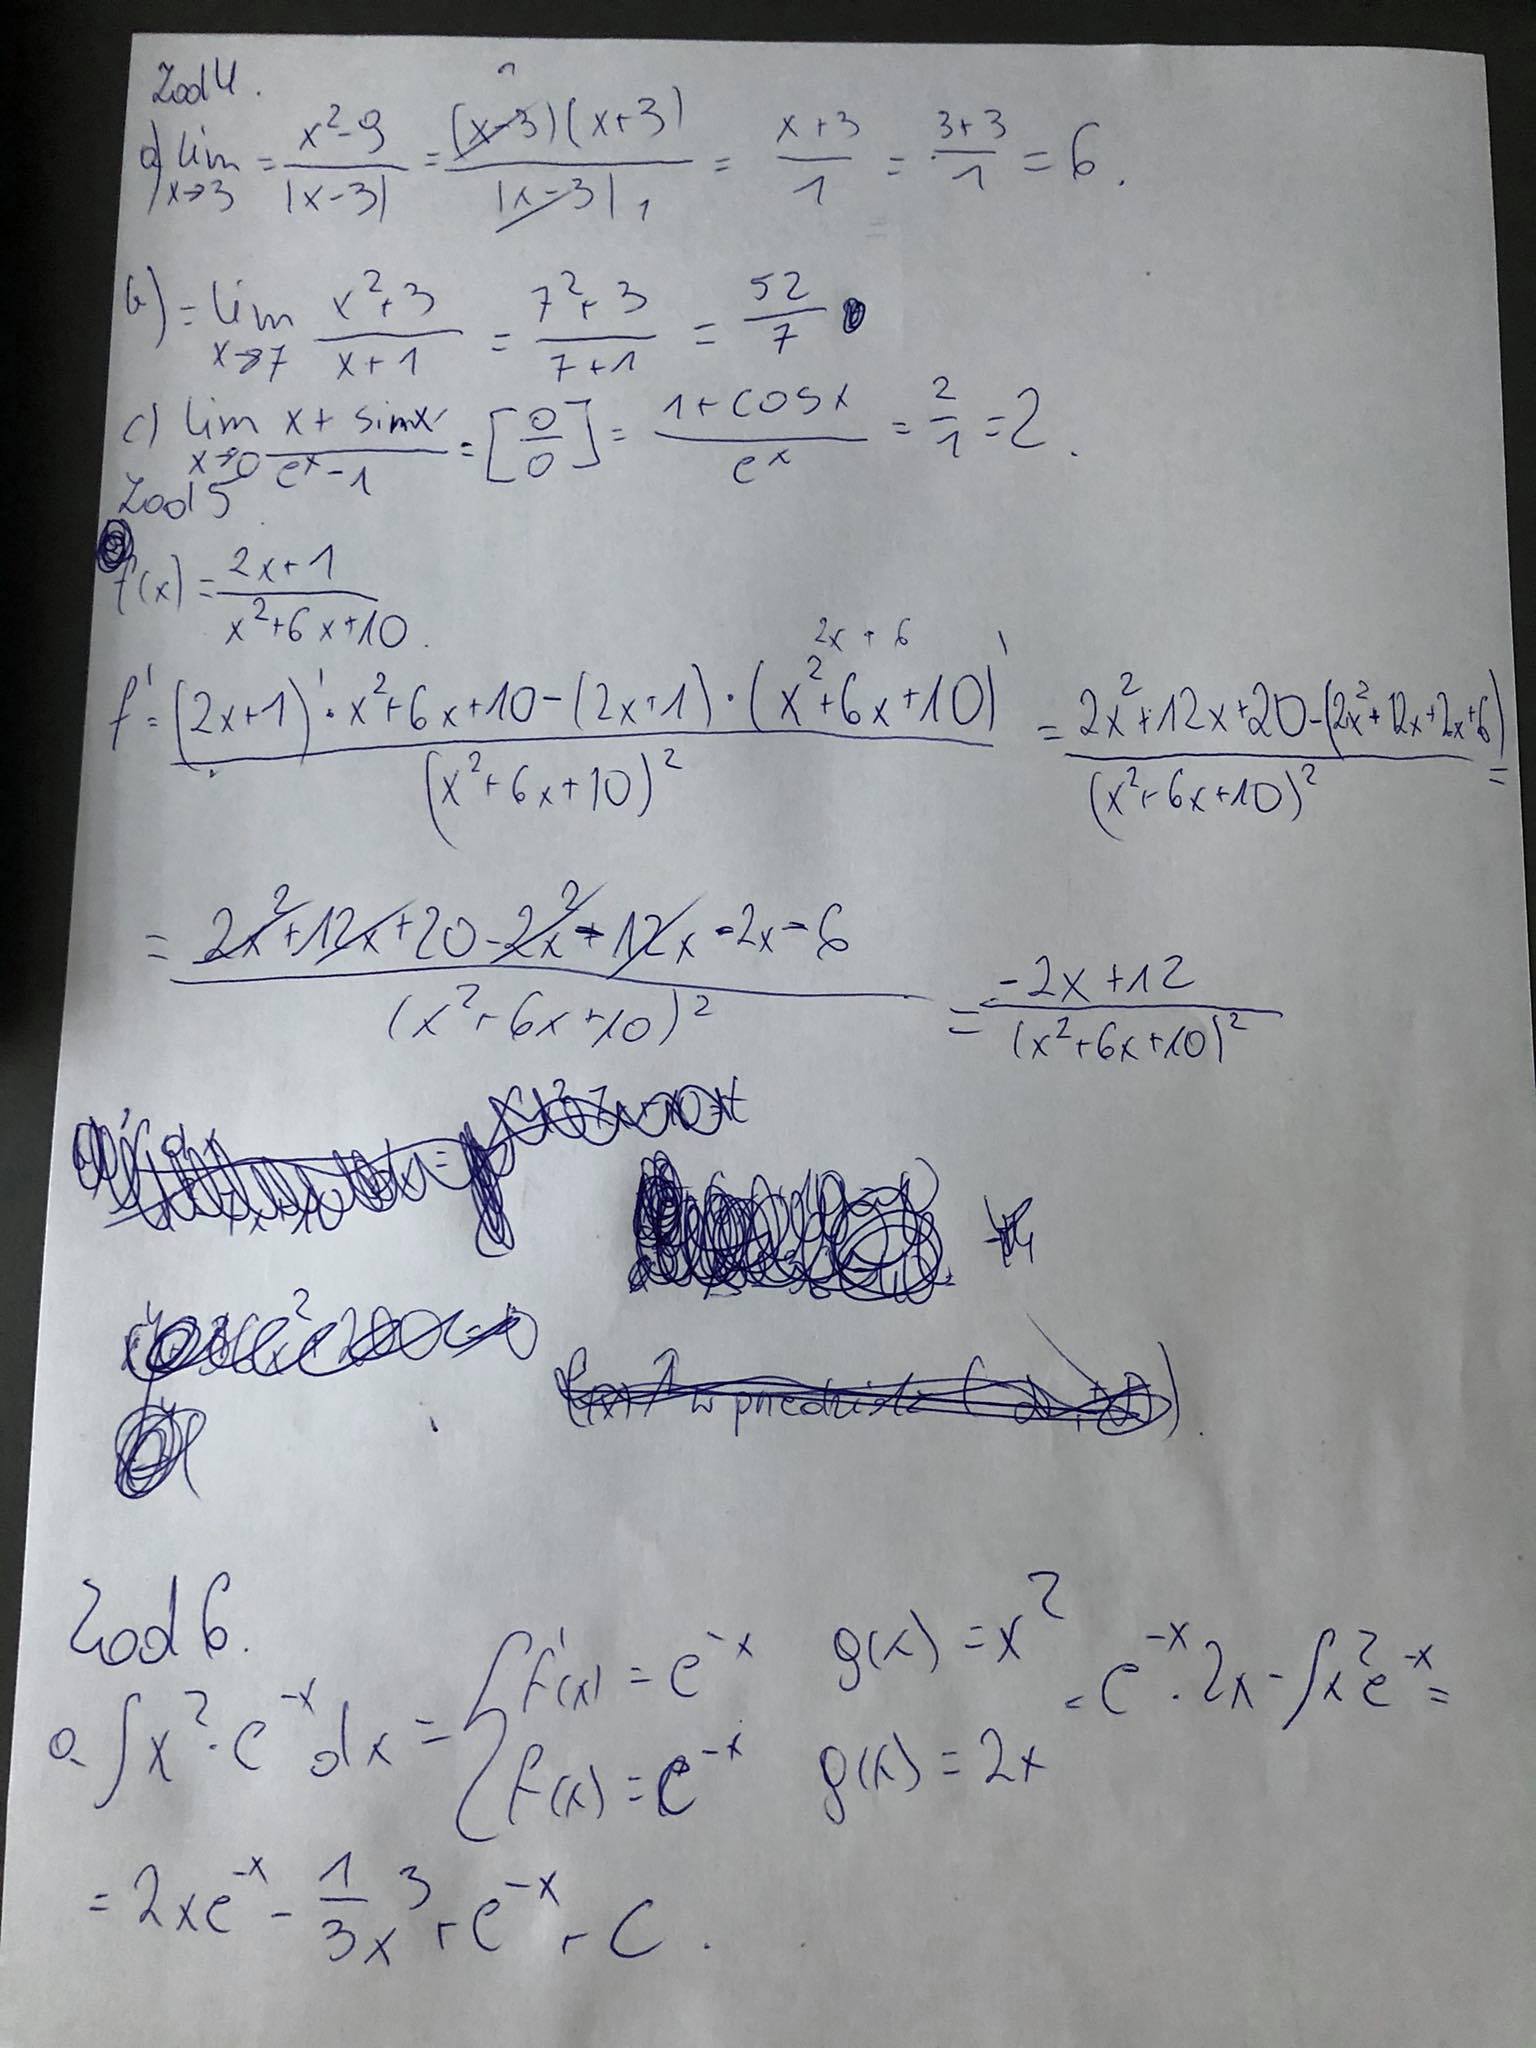 Zad 4.
a) lim x→3 = x²-9 / |x-3| = (x-3)(x+3) / |x-3| 1 = x+3 / 1 = 3+3 / 1 = 6.
b) = lim x→7 x²+3 / x+1 = 7²+3 / 7+1 = 52 / 7
c) lim x→0 x+sinx / eˣ-1 = [0/0] = 1+cosx / eˣ = 2/1 = 2.
Zad 5
f(x) = 2x+1 / x²+6x+10.
2x+6
f' = (2x+1)'·x²+6x+10-(2x+1)·(x²+6x+10)' / (x²+6x+10)² = 2x²+12x+20-(2x²+12x+2x+6) / (x²+6x+10)² =
= 2x²+12x+20-2x²-12x-2x-6 / (x²+6x+10)² = -2x+12 / (x²+6x+10)²
Zad 6.
a. ∫x²·e⁻ˣdx = { f'(x) = e⁻ˣ g(x) = x²
f(x) = e⁻ˣ g(x) = 2x = e⁻ˣ·2x-∫x²e⁻ˣ =
= 2xe⁻ˣ - 1/3x³+e⁻ˣ+C.